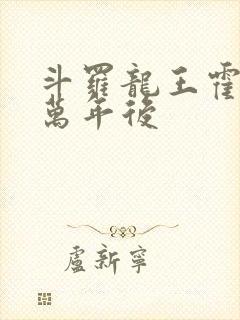 斗羅龍王霍
萬年後
盧新寧